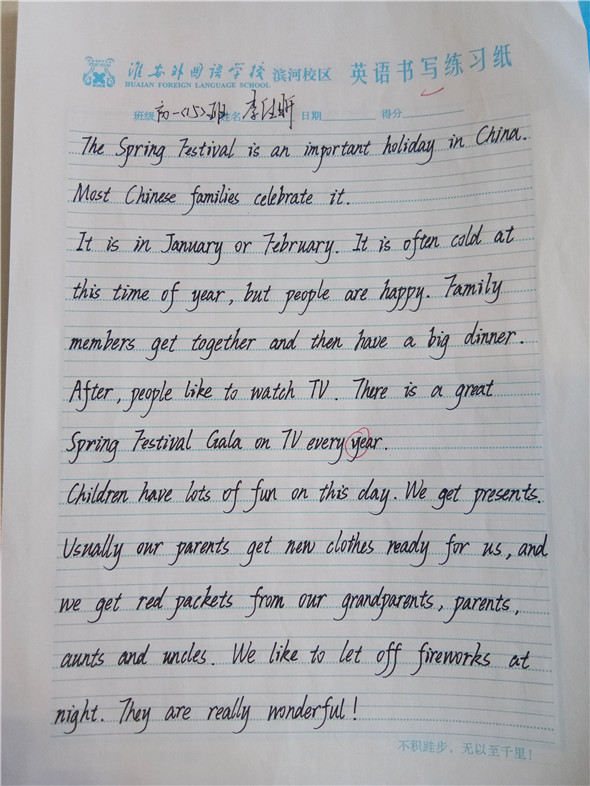 淮安外国语学校 滨河校区 英语书写练习纸
HUAIAN FOREIGN LANGUAGE SCHOOL
班级 初一(15)班 姓名 李 昕 日期 得分
The Spring Festival is an important holiday in China.
Most Chinese families celebrate it.
It is in January or February. It is often cold at
this time of year, but people are happy. Family
members get together and then have a big dinner.
After, people like to watch TV. There is a great
Spring Festival Gala on TV every year.
Children have lots of fun on this day. We get presents.
Usually our parents get new clothes ready for us, and
we get red packets from our grandparents, parents,
aunts and uncles. We like to let off fireworks at
night. They are really wonderful!
不积跬步，无以至千里！